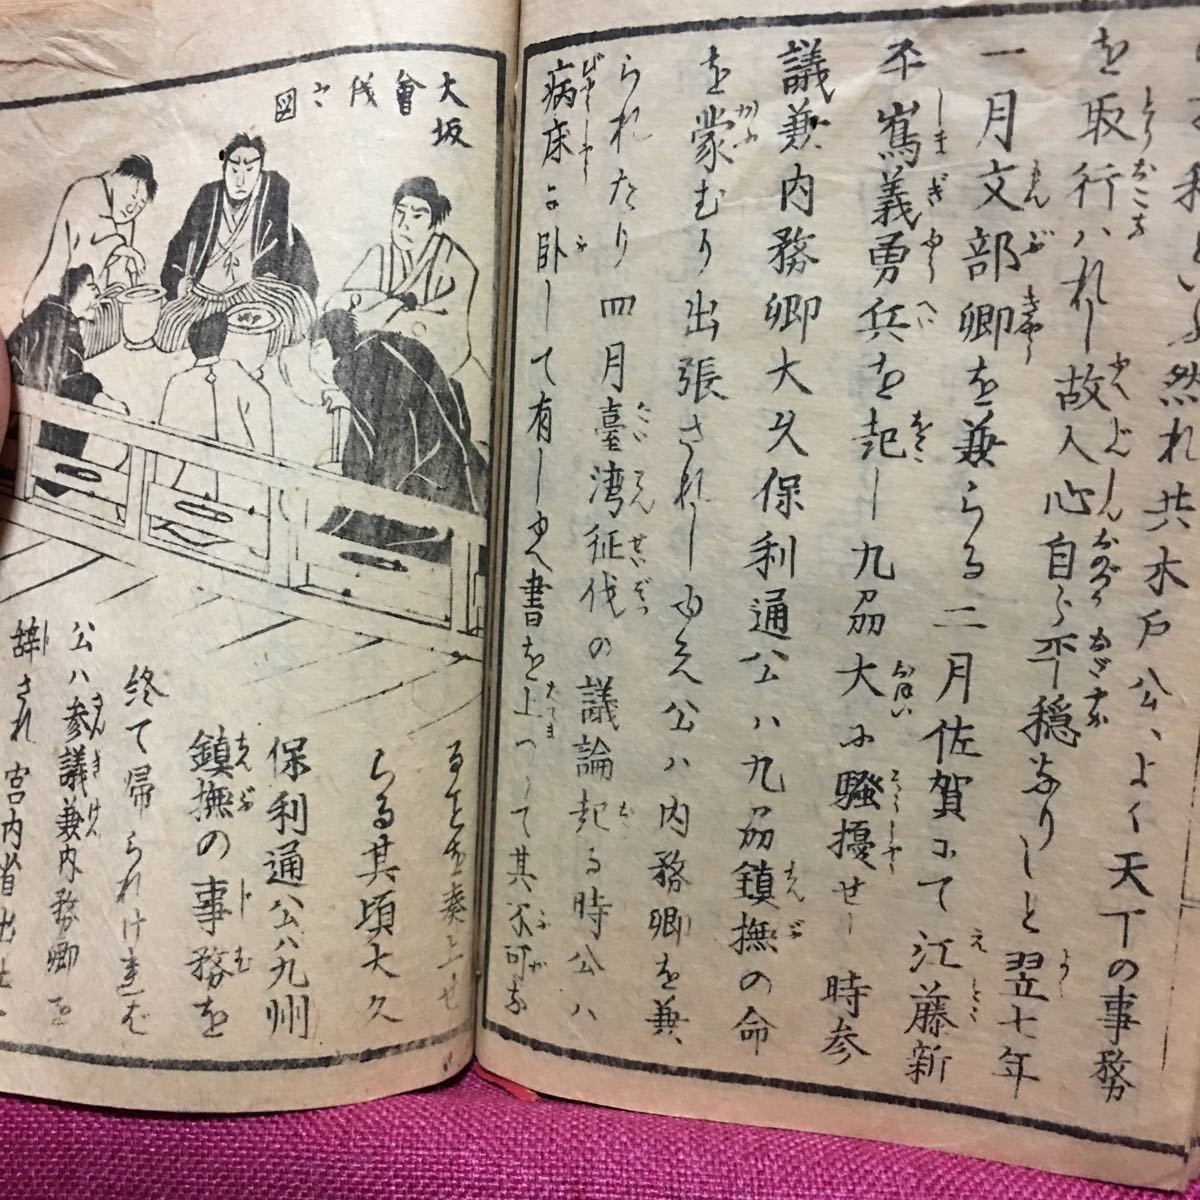 然れ共木戸公、よく天下の事務
を取行ハれし故人心自ら平穏なりしと翌七年
一月文部卿を兼らる二月佐賀にて江藤新
平嶌義勇兵を起し九刕大に騒擾せし時参
議兼内務卿大久保利通公ハ九刕鎮撫の命
を蒙むり出張されしゆゑ公ハ内務卿を兼
られたり四月臺湾征伐の議論起る時公ハ
病床に臥して有しゆへ書を上つりて其不可な
大坂
會議之図
るを奏上せ
らる其頃大久
保利通公ハ九州
鎮撫の事務を
終て帰られければ
公ハ参議兼内務卿を
辞され宮内省出仕